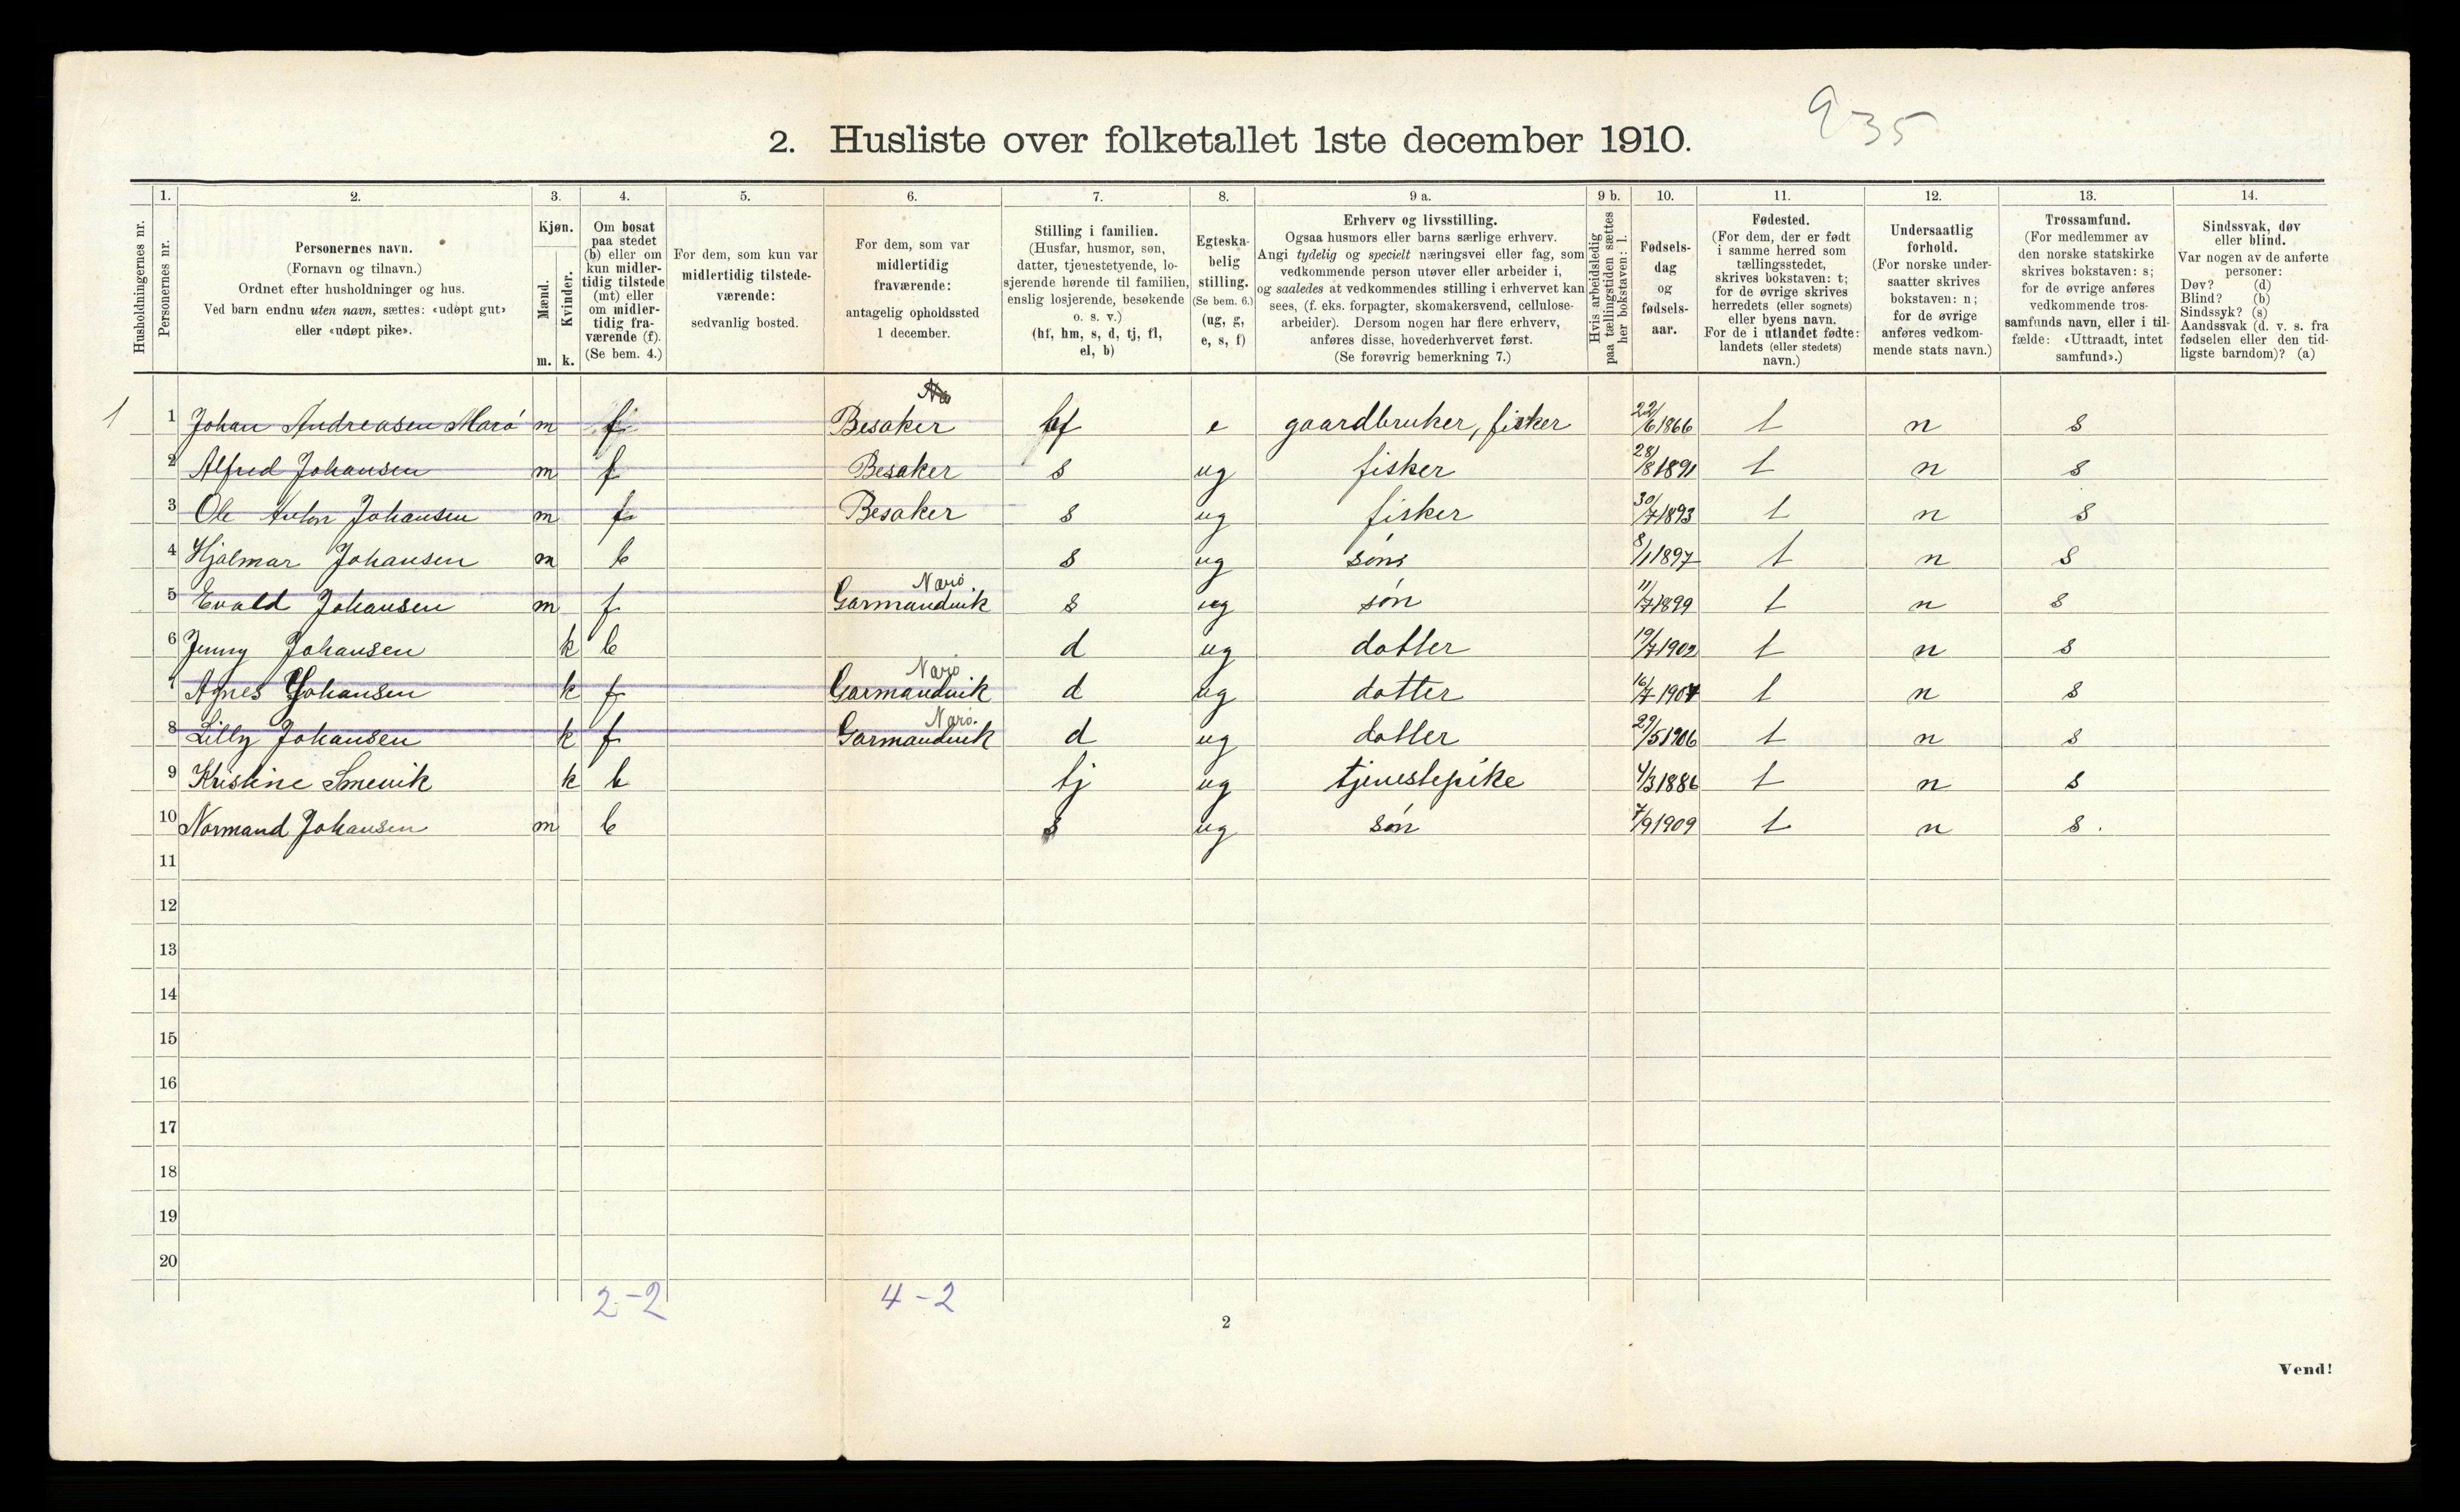 935
2. Husliste over folketallet 1ste december 1910.
Husholdningernes nr.
1.
Personernes nr.
2.
Personernes navn.
(Fornavn og tilnavn.)
Ordnet efter husholdninger og hus.
Ved barn endnu uten navn, sættes: «udøpt gut»
eller «udøpt pike».
3.
Kjøn.
Mænd.
m.
Kvinder.
k.
4.
Om bosat
paa stedet
(b) eller om
kun midler-
tidig tilstede
(mt) eller
om midler-
tidig fra-
værende (f).
(Se bem. 4.)
5.
For dem, som kun var
midlertidig tilstede-
værende:
sedvanlig bosted.
6.
For dem, som var
midlertidig
fraværende:
antagelig opholdssted
1 december.
7.
Stilling i familien.
(Husfar, husmor, søn,
datter, tjenestetyende, lo-
sjerende hørende til familien,
enslig losjerende, besøkende
o. s. v.)
(hf, hm, s, d, tj, fl,
el, b)
8.
Egteska-
belig
stilling.
(Se bem. 6.)
(ug, g,
e, s, f)
9 a.
Erhverv og livsstilling.
Ogsaa husmors eller barns særlige erhverv.
Angi tydelig og specielt næringsvei eller fag, som
vedkommende person utøver eller arbeider i,
og saaledes at vedkommendes stilling i erhvervet kan
sees, (f. eks. forpagter, skomakersvend, cellulose-
arbeider). Dersom nogen har flere erhverv,
anføres disse, hovederhvervet først.
(Se forøvrig bemerkning 7.)
9 b.
Hvis arbeidsledig
paa tællingstiden sættes
her bokstaven: l.
10.
Fødsels-
dag
og
fødsels-
aar.
11.
Fødested.
(For dem, der er født
i samme herred som
tællingsstedet,
skrives bokstaven: t;
for de øvrige skrives
herredets (eller sognets)
eller byens navn.
For de i utlandet fødte:
landets (eller stedets)
navn.)
12.
Undersaatlig
forhold.
(For norske under-
saatter skrives
bokstaven: n;
for de øvrige
anføres vedkom-
mende stats navn.)
13.
Trossamfund.
(For medlemmer av
den norske statskirke
skrives bokstaven: s;
for de øvrige anføres
vedkommende tros-
samfunds navn, eller i til-
fælde: «Uttraadt, intet
samfund».)
14.
Sindssvak, døv
eller blind.
Var nogen av de anførte
personer:
Døv? (d)
Blind? (b)
Sindssyk? (s)
Aandssvak (d. v. s. fra
fødselen eller den tid-
ligste barndom)? (a)
1 1 Johan Andreasen Marø m f Besaker hf e gaardbruker, fisker 22/6 1866 t n s
2 Alfred Johansen m f Besaker s ug fisker 28/8 1891 t n s
3 Ole Anton Johansen m f Besaker s ug fisker 30/7 1893 t n s
4 Hjalmar Johansen m b s ug søns 8/1 1897 t n s
5 Evald Johansen m f Garmandvik Narø s ug søn 11/7 1899 t n s
6 Jenny Johansen k b d ug datter 19/7 1902 t n s
7 Agnes Johansen k f Garmandvik Narø d ug datter 16/7 1904 t n s
8 Lilly Johansen k f Garmandvik Narø. d ug datter 29/5 1906 t n s
9 Kristine Smevik k b tj ug tjenestepike 4/3 1886 t n s
10 Normand Johansen m b s ug søn 7/9 1909 t n s.
11
12
13
14
15
16
17
18
19
20
2-2 4-2
2
Vend!